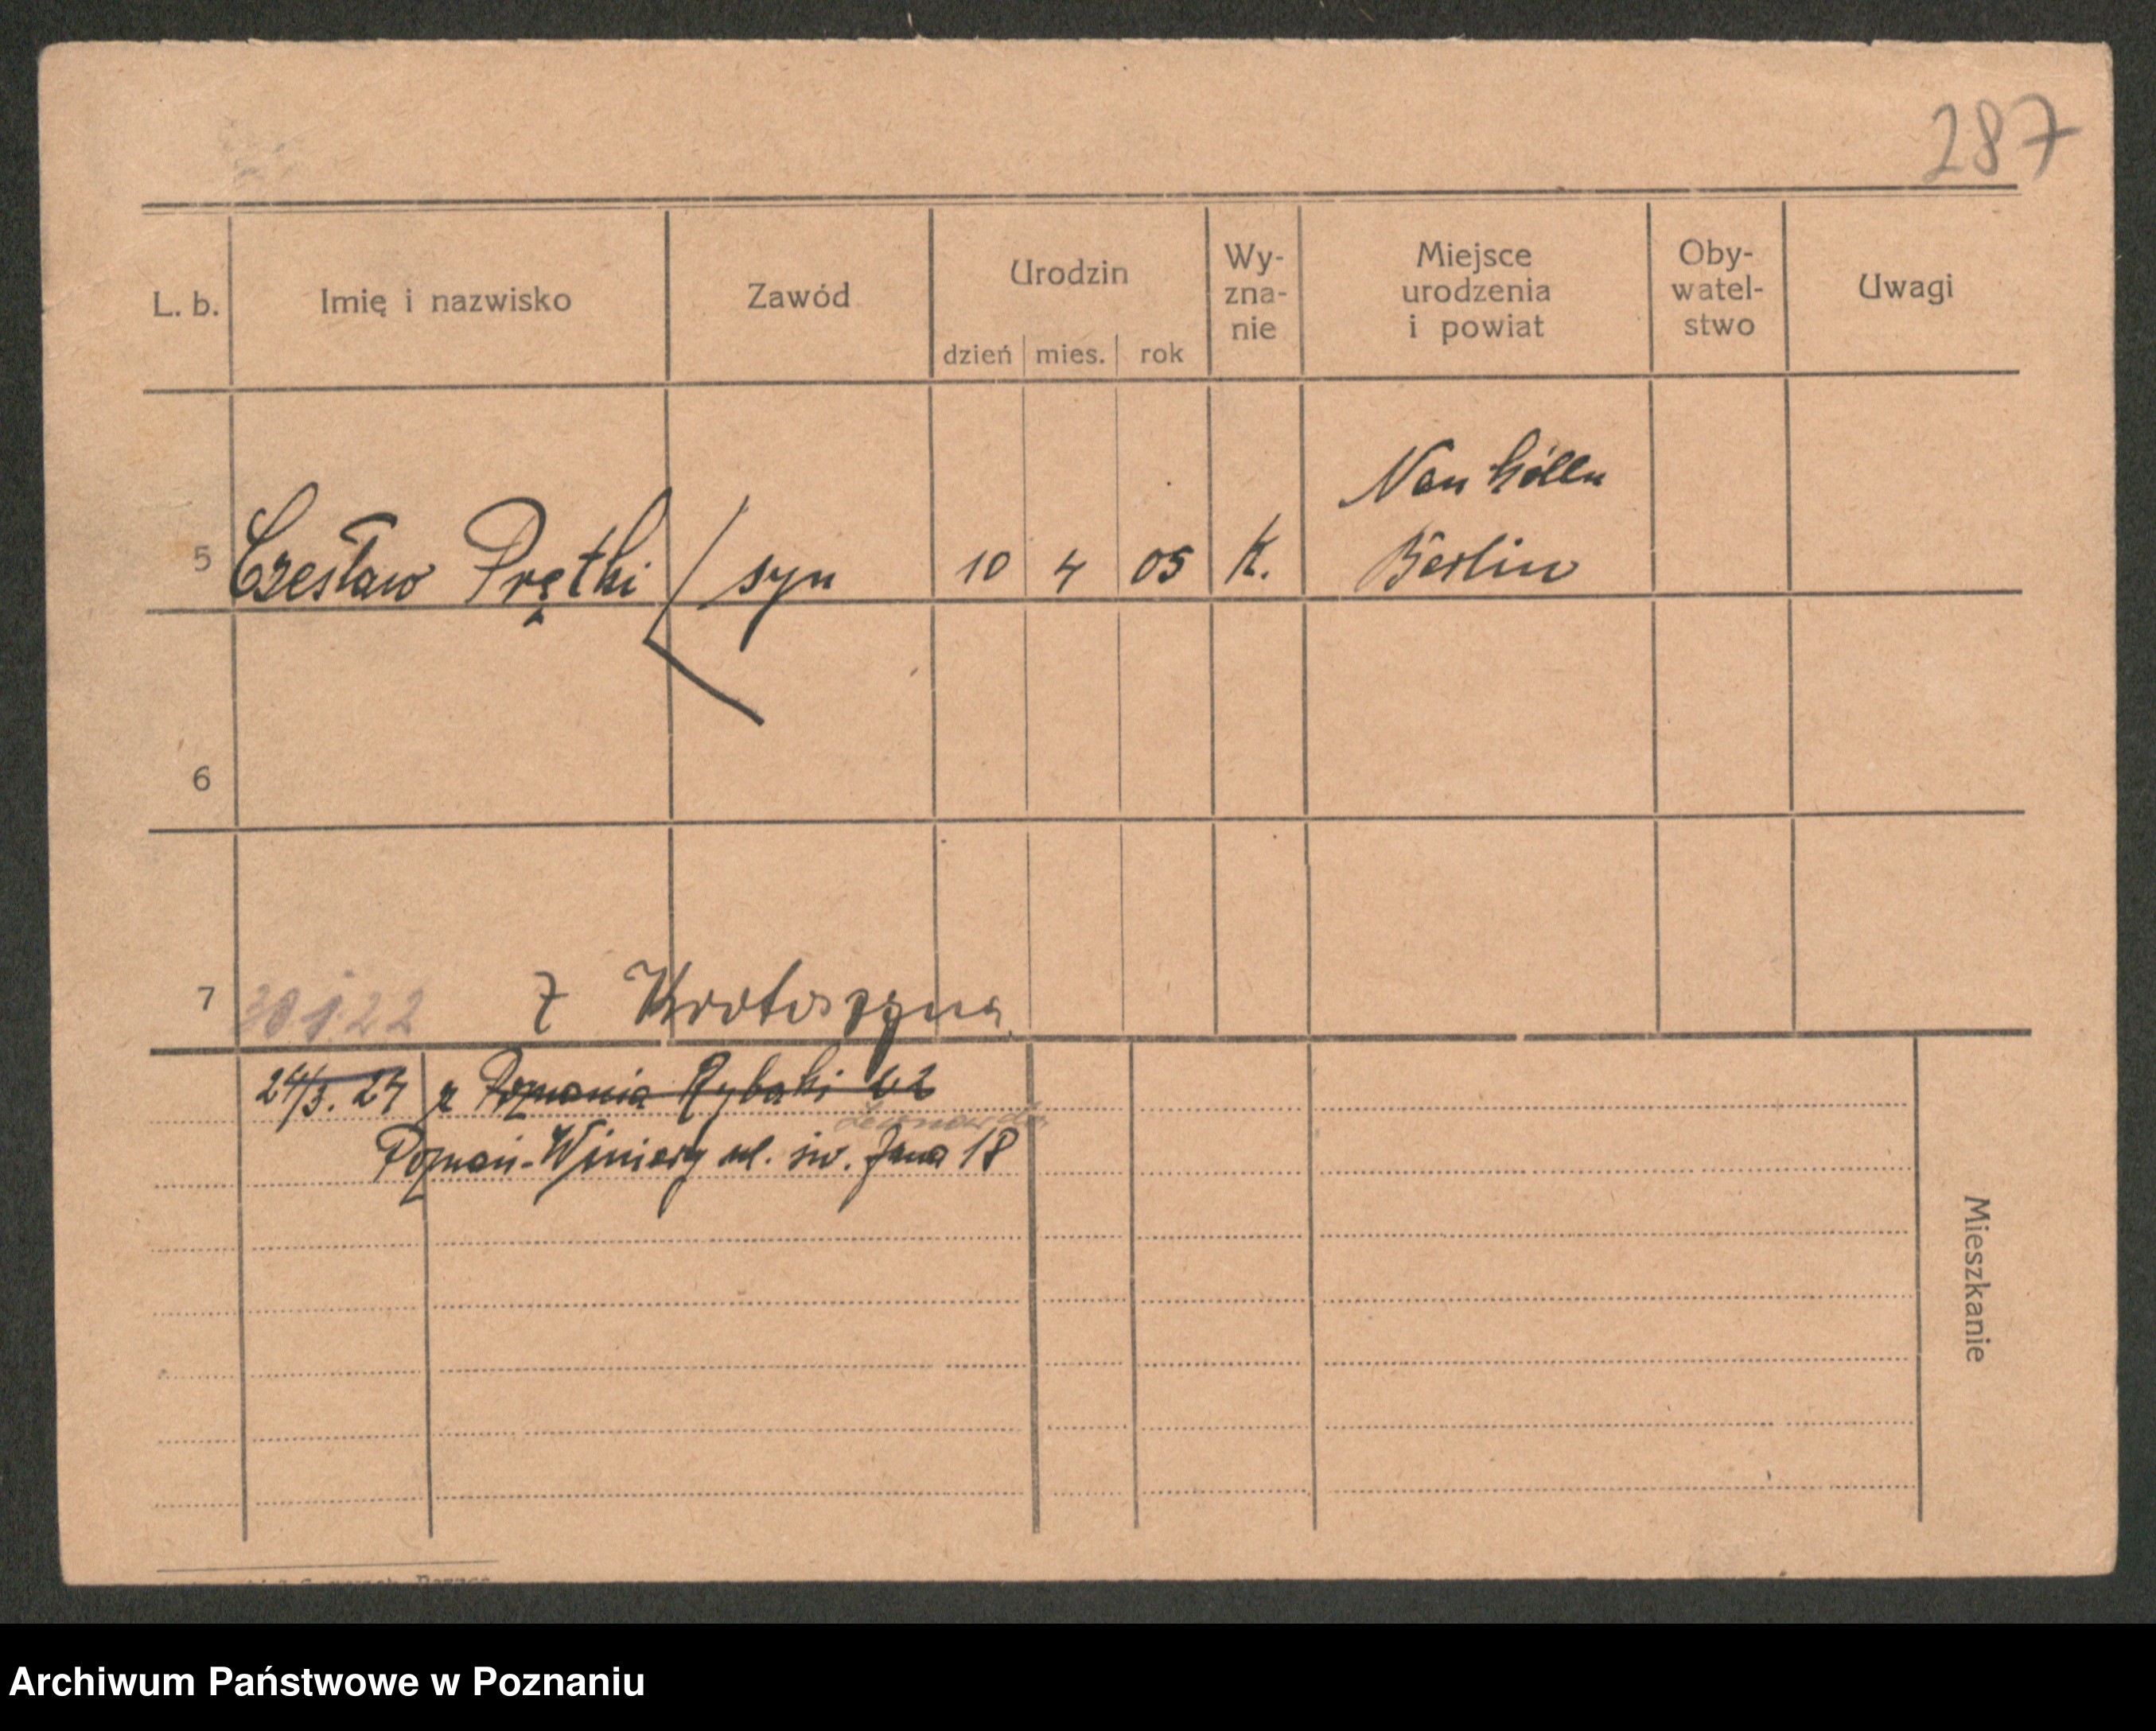 287
L. b. Imię i nazwisko Zawód Urodzin Wy- Miejsce Oby- Uwagi
zna- urodzenia watel-
nie i powiat stwo
dzień mies. rok
Neu kölln
5 Czesław Prętki / syn 10 4 05 K. Berlin
6
7 22 z Krotoszyna
24/3. 24 z Poznania Rybaki
Poznań-Winiary ul. św. Jana 18
Mieszkanie
Archiwum Państwowe w Poznaniu